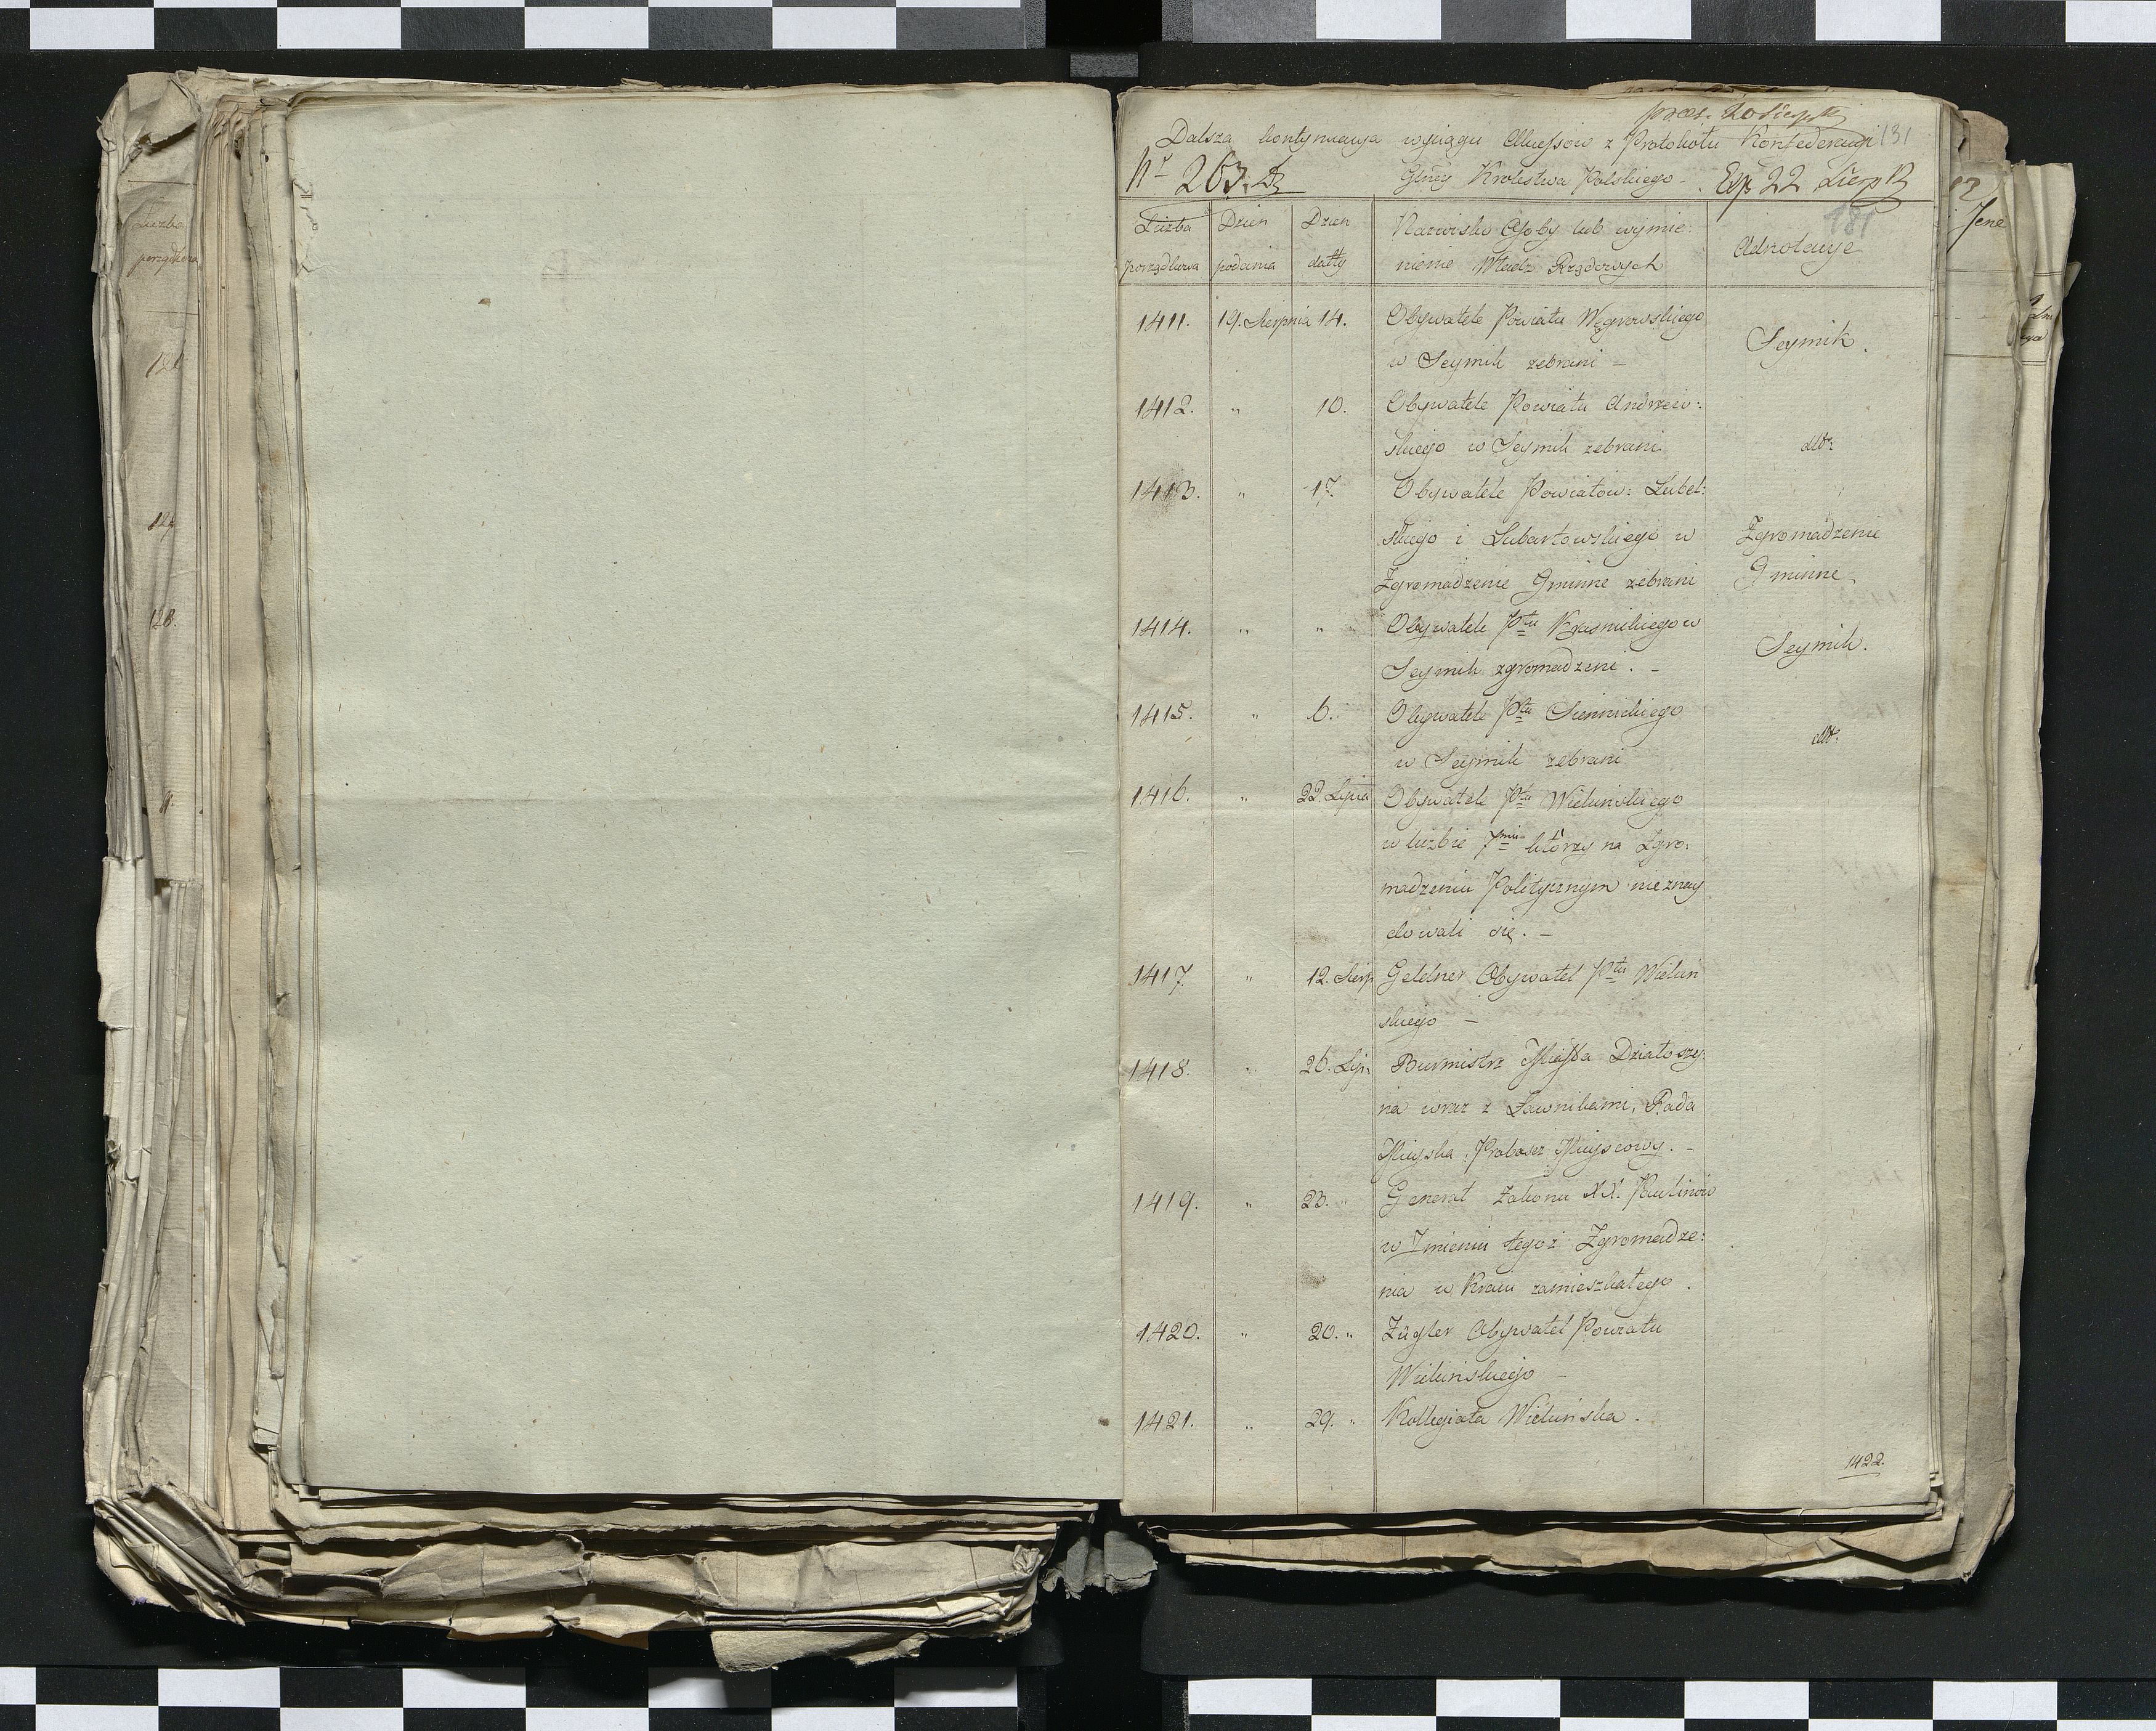 praes. 20 Sierp
Dalsza kontynuacya wyciągu Akcessow z Protokołu Konfederacyi 131
Nr 263.
Glney Krolestwa Polskiego. Exp 22 Sierp
181
Liczba Dzien Dzien Nazwisko Osoby lub wymie:
porządkowa podania datty nienie Władz Rządowych Adnotacye
1411. 19. Sierpnia 14. Obywatele Powiatu Węgrowskiego
w Seymik zebrani – Seymik.
1412. " 10. Obywatele Powiatu Andrzeiow:
skiego w Seymik zebrani dtto:
1413. " 17. Obywatele Powiatow: Lubel:
skiego i Lubartowskiego w Zgromadzenie
Zgromadzenie Gminne zebrani Gminne
1414. " " Obywatele Ptu Krasnickiego w
Seymik zgromadzeni. – Seymik.
1415. " 6. Obywatele Ptu Siennickiego
w Seymik zebrani dtto:
1416. " 22. Lipca Obywatele Ptu Wieluńskiego
w liczbie 7miu którzy na Zgro:
madzeniu Politycznym nieznay
dowali się. –
1417. " 12. Sierp Geldner Obywatel Ptu Wieluń
skiego –
1418. " 26. Lip: Burmistrz Miasta Działoszy:
na wraz z Ławnikami, Rada
Mieyska, Proboszcz Mieyscowy. –
1419. " 23. " Generał Zakonu XX. Paulinów
w Imieniu tegoż Zgromadze:
nia w Kraiu zamieszkałego.
1420. " 20. " Zügler Obywatel Powiatu
Wieluńskiego –
1421. " 29. " Kollegiata Wieluńska.
1422.